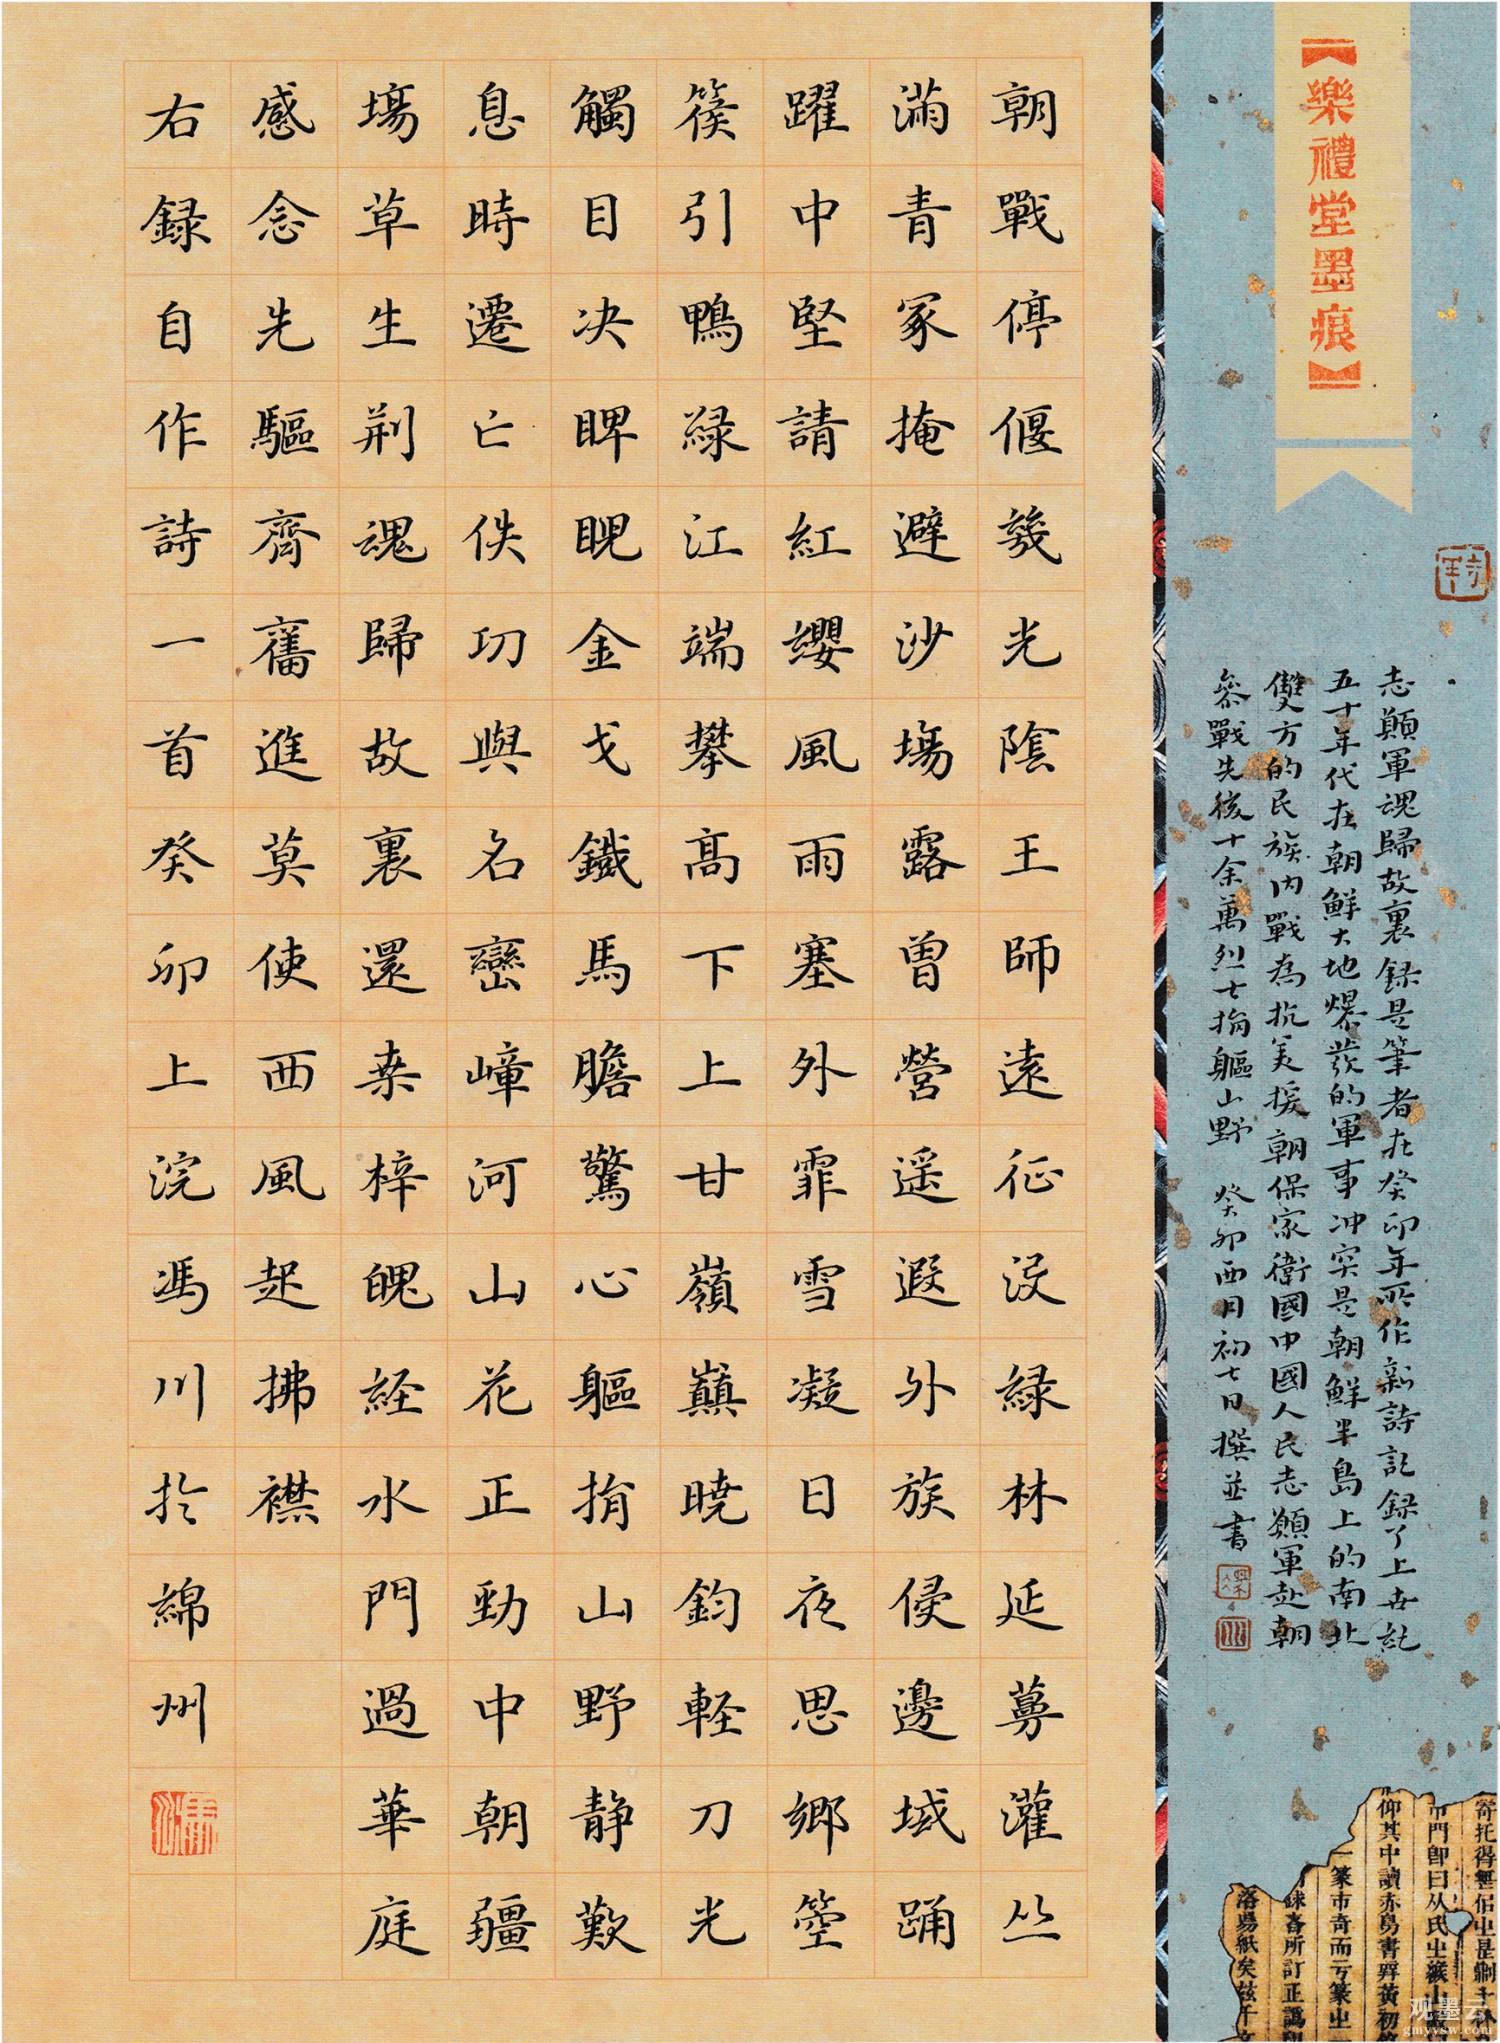 【樂禮堂墨痕】
志願軍魂歸故裏録是筆者在癸卯年所作新詩記録了上世紀
五十年代在朝鮮大地爆發的軍事冲突是朝鮮半島上的南北
雙方的民族内戰為抗美援朝保家衛國中國人民志願軍赴朝
參戰先後十余萬烈士捐軀山野 癸卯酉月初七日撰並書
朝戰停偃幾光陰王師遠征没緑林延蕚灌丛
滿青冢掩避沙場露曾營遥遐外族侵邊域踊
躍中堅請紅纓風雨塞外霏雪凝日夜思鄉箜
篌引鴨緑江端攀高下上甘嶺巔曉鈞輕刀光
觸目决睥睨金戈鐵馬膽驚心軀捐山野静歎
息時遷亡佚功與名巒嶂河山花正勁中朝疆
場草生荆魂歸故裏還桒梓魄経水門過華庭
感念先驅齊舊進莫使西風起拂襟
右録自作詩一首癸卯上浣馮川扵綿州
寄托得
門即曰从氏㞢
仰其中讀亦易書
一篆市奇而亏篆㞢
所訂正譌
洛易紙矣兹
观墨云
gmyvsw.com